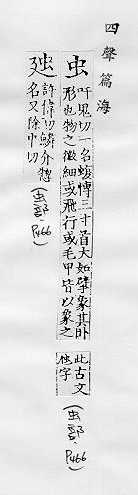 四聲篇海
虫
吁鬼切一名蝮博三寸首大如擘象其卧
形也物之微細或飛行或毛甲皆以象之
此古文
字
(虫部 P466)
許偉切鱗介總
名又除中切
(虫部 P466)